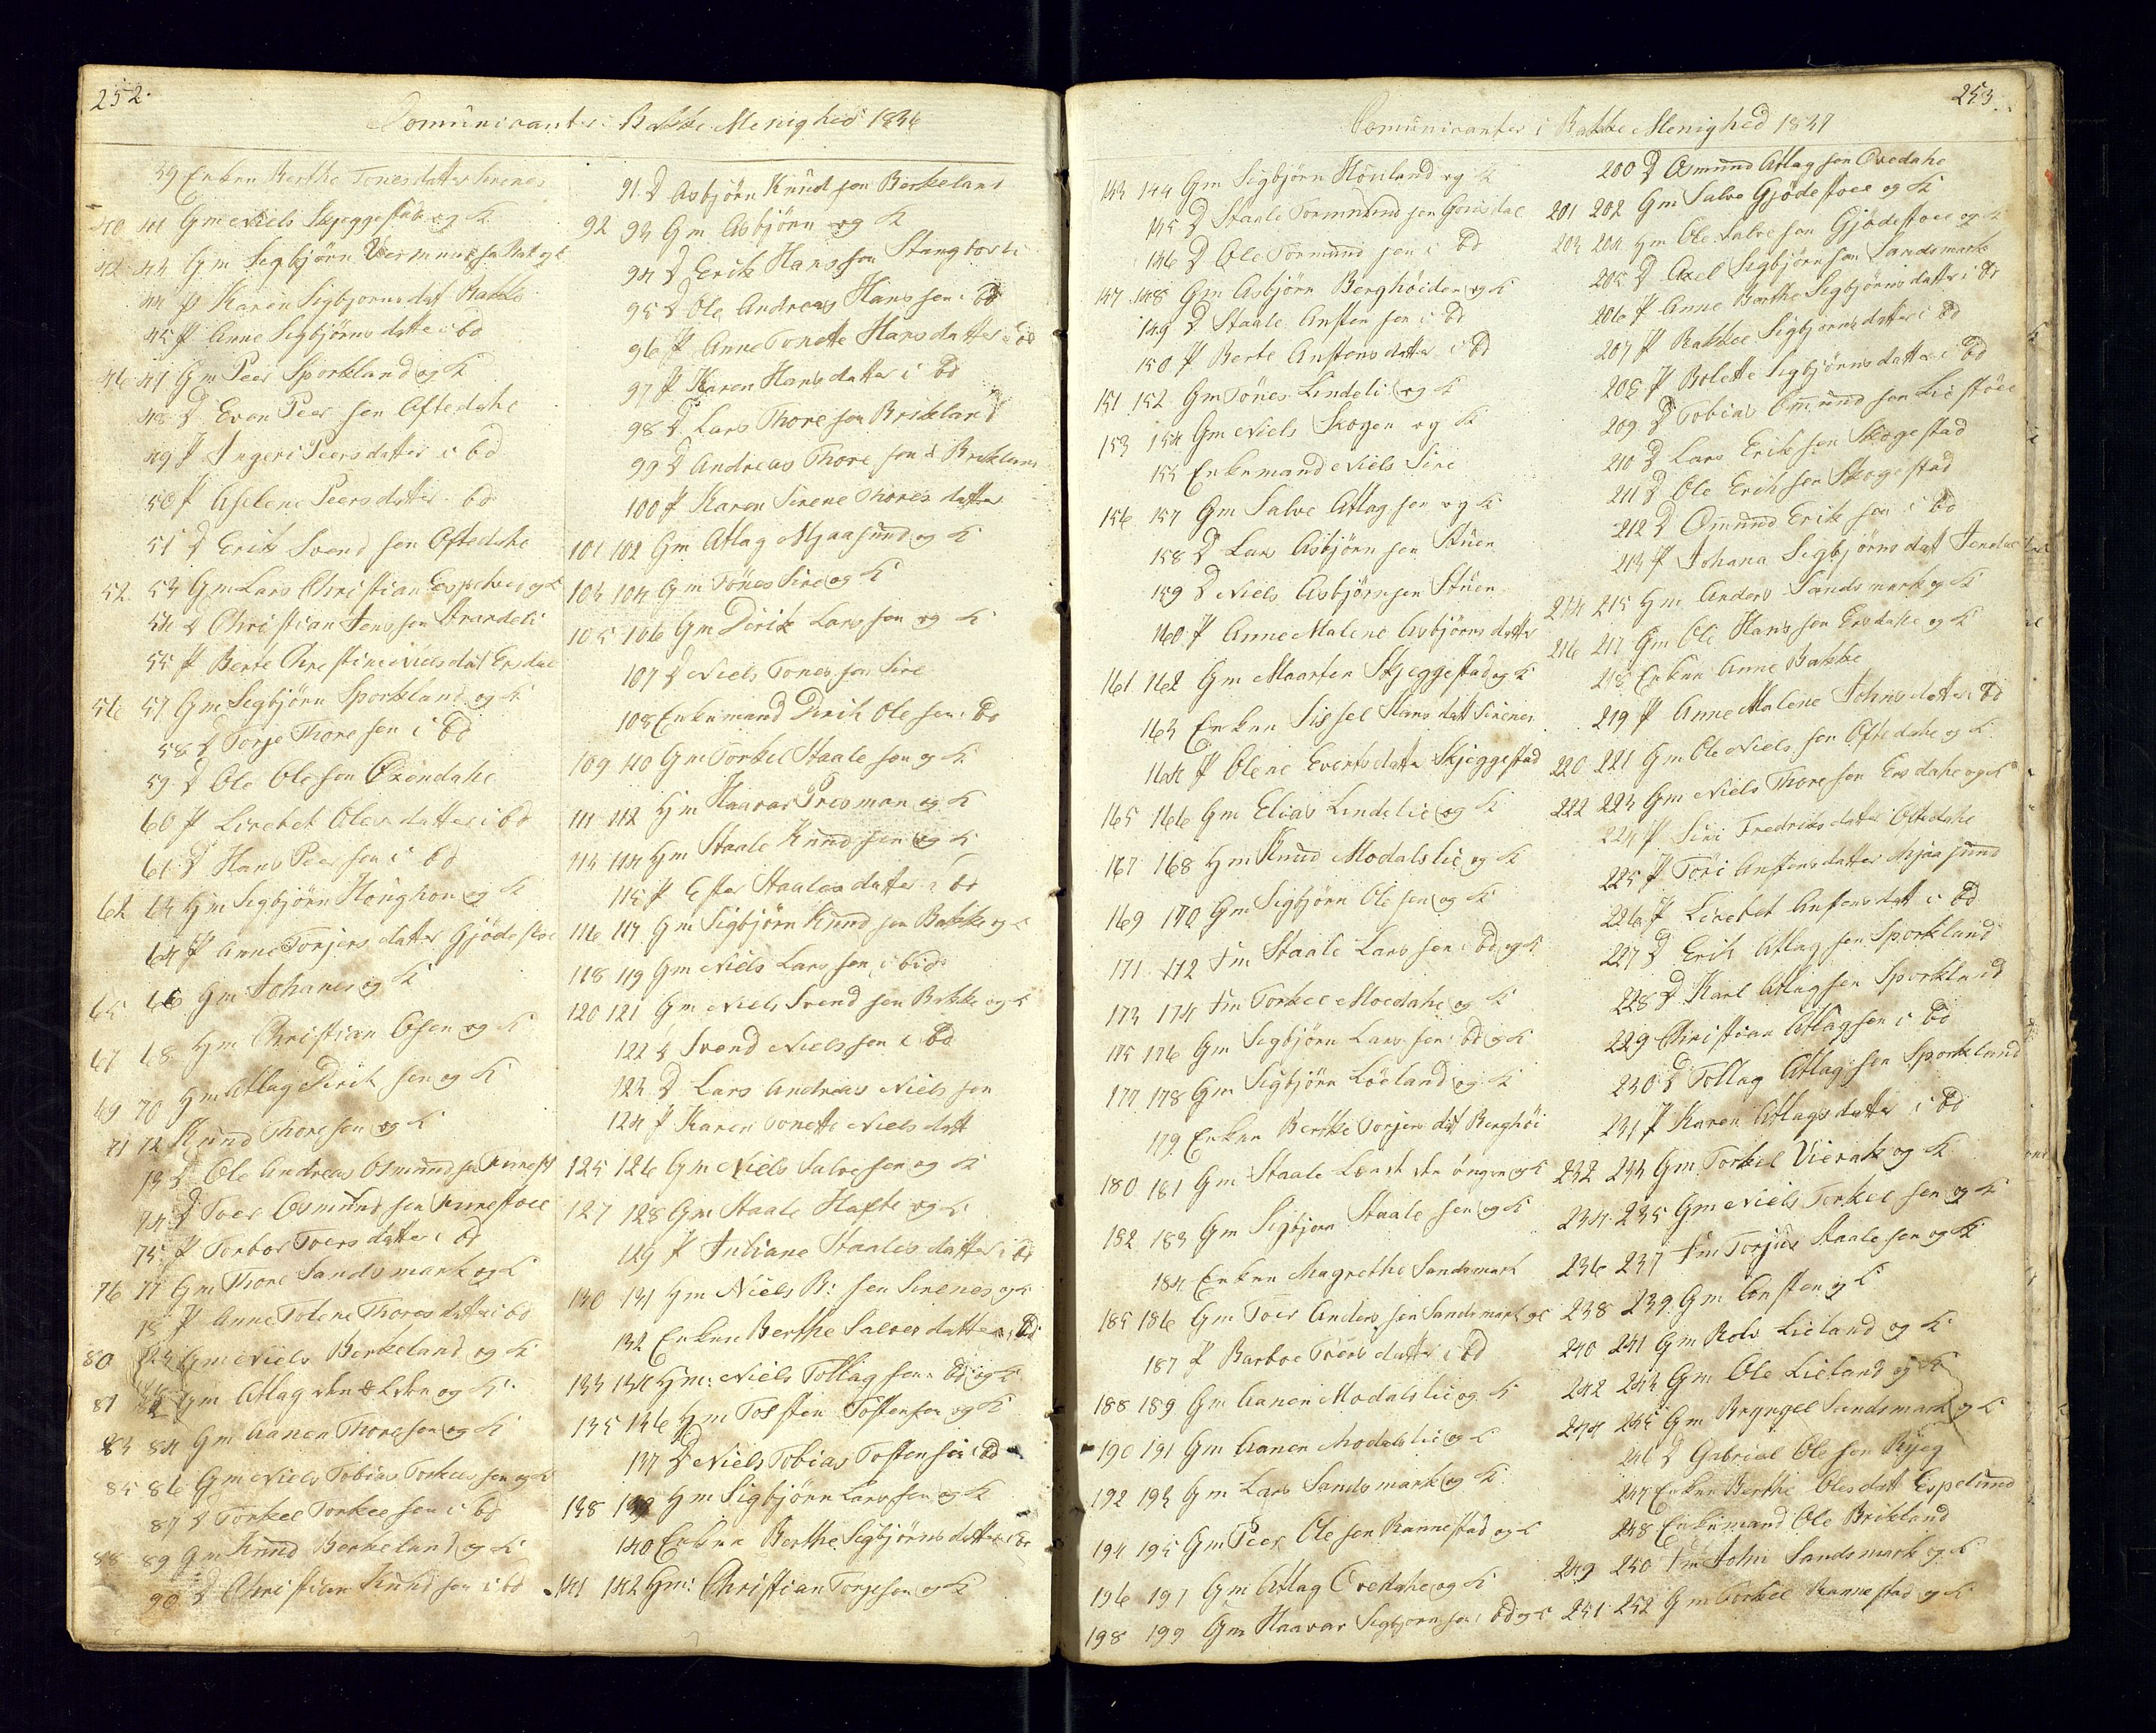 252.
Communicanter i Bakke Menighed 1836
39 Enken Berthe Tonesdatter Sirenes
40 41 Gm Niels Skjeggestad og K
42 43 Gm Sigbjörn og K
44 P Karen Sigbjornsdat Bakke
45 P Anne Sigbjörns datter i bd
46 47 Gm Peer Sporkland og K
48 D Even Peer sen Oftedahl
49 P Ingeri Peers datter i bd
50 P Aselene Peers datter bd
51 D Erik Svend sen Oftedahl
52 53 Gm Lars Christian og K
54 D Christian Jens sen
55 P Berte Christine Niels dat Ersdal
56 57 Gm Sigbjörn Sporkland og K
58 D Torje Thore sen i bd
59 D Ole Ole sen Öxendahl
60 P Lisebet Oles datter i bd
61 D Hans Peer sen i bd
62 63 Hm Sigbjörn Houghom og K
64 P Anne Torjers datter Gjödestöl
65 66 Gm Johanes og K
67 68 Hm Christian Osen og K
69 70 Hm Atlag Dirik sen og K
71 72 Knud Thore sen og K
73 D Ole Andreas Osmund sen
74 D Toer Osmund sen
75 P Torbor Toers datter i bd
76 77 Gm Thore Sandsmark og K
78 P Anne Tolene Thores datter i bd
80 Gm Niels Berkeland og K
81 82 Gm Atlag og K
83 84 Gm Aanen Thore sen og K
85 86 Gm Niels Tobias Torkels sen og K
87 D Torkel Torkel sen i bd
88 89 Gm Knud Berkeland og K
90 D Christian Knud sen i bd
91 D Asbjörn Knud sen Berkeland
92 93 Gm Asbjörn og K
94 D Erik Hans sen Stangborli
95 D Ole Andreas Hans sen i bd
96 P Anne Tonette Hans datter i bd
97 P Karen Hans datter i bd
98 D Lars Thore sen Brikland
99 D Andreas Thore sen Brikland
100 P Karen Sirene Thores datter
101 102 Gm Atlag Mjaasund og K
103 104 Gm Tönes Sire og K
105 106 Gm Dirik Lars sen og K
107 D Niels Tones sen Sire
108 Enkemand Dirik Ole sen i bd
109 110 Gm Torkel Staale sen og K
111 112 Hm Haavar Presman og K
113 114 Hm Staale Knud sen og K
115 P Ester Staales datter i bd
116 117 Gm Sigbjörn Knud sen Bakke og K
118 119 Gm Niels Lars sen i bid
120 121 Gm Niels Svend sen Bakke og K
122 D Svend Niels sen i bd
123 D Lars Andreas Niels sen
124 P Karen Tonette Niels datt
125 126 Gm Niels Salve sen og K
127 128 Gm Staale Hafte og K
129 P Juliane Staales datter i bd
130 131 Hm Niels R: sen Sirenes og K
132 Enken Berthe Salves datter i bd
133 134 Hm: Niels Tollag sen i bd og K
135 136 Hm Tosten Tosten sen og K
137 D Niels Tobias Tosten sen i bd
138 139 Hm Sigbjörn Lars sen og K
140 Enken Berthe Sigbjörns datter i bd
141 142 Hm: Christian Torje sen og K
253.
Communicanter i Bakke Menighed 1837
143 144 Gm Sigbjörn Houland og K
145 D Staale Tormund sen
146 D Ole Tormund sen i bd
147 148 Gm Asbjörn Berghöiden og K
149 D Staale Ansten sen i bd
150 P Berte Anstens datter i bd
151 152 Gm Tönes Lindeli og K
153 154 Gm Niels Skogen og K
155 Enkemand Niels Sire
156 157 Gm Salve Atlag sen og K
158 D Lars Asbjörn sen Stuen
159 D Niels Asbjörn sen Stuen
160 P Anne Malene Asbjörns datter
161 162 Gm Maarten Skjeggestad og K
163 Enken Sissel Hans datt Sirenes
164 P Olene Everts datter Skjeggestad
165 166 Gm Elias Lindelie og K
167 168 Hm Knud Modalslie og K
169 170 Gm Sigbjörn Ole sen og K
171 172 Fm Staale Lars sen i bd og K
173 174 Fm Torkel Moedahl og K
175 176 Gm Sigbjörn Lars sen i bd og K
177 178 Gm Sigbjörn Löeland og K
179 Enken Berthe Torjers dat Berghöi
180 181 Gm Staale den yngre og K
182 183 Gm Sigbjorn Staale sen og K
184 Enken Magrethe Sandsmark
185 186 Gm Toer Anders sen Sandsmark og K
187 P Barboe Toers datter i bd
188 189 Gm Aanen Modalslie og K
190 191 Gm Aanen Modalslie og K
192 193 Gm Lars Sandsmark og K
194 195 Gm Peer Ole sen Rannestad og K
196 197 Gm Atlag Ovedahl og K
198 199 Gm Haavar Sigbjorn sen i bd og K
200 D Osmund Atlag sen Ovedahl
201 202 Gm Salve Gjödestoel og K
203 204 Hm Ole Salve sen Gjödestoel og K
205 D Axel Sigbjörn sen Sandsmark
206 P Anne Berthe Sigbjörns datter i bd
207 P Rakkel Sigbjorns datter i bd
208 P Bolette Sigbjörns datter i bd
209 D Tobias Omund sen Liestöel
210 D Lars Erik sen Skogestad
211 D Ole Erik sen Skogestad
212 D Omund Erik sen i bd
213 P Johana Sigbjörns dat
214 215 Hm Anders Sandsmark og K
216 217 Gm Ole Hans sen Ersdahl og K
218 Enken Anne Bakke
219 P Anne Malene Johns datter i bd
220 221 Gm Ole Niels sen Oftedahl og K
222 223 Gm Niels Thore sen Ersdahl og K
224 P Siri Fredriks datter Oftedahl
225 P Töri Anstens datter Mjaasund
226 P Lisebet Anstens datt i bd
227 D Erik Atlag sen Sporkland
228 D Karl Atlag sen Sporkland
229 Christian Atlag sen i bd
230 D Tollag Atlag sen Sporkland
231 P Karen Atlags datter i bd
232 233 Gm Torkel Vierak og K
234 235 Gm Niels Torkel sen og K
236 237 Fm Torjus Staale sen og K
238 239 Gm Onsten og K
240 241 Gm Rolv Lieland og K
242 243 Gm Ole Lieland og K
244 245 Gm Bryngel Sandsmark og K
246 D Gabriel Ole sen Ryeg
247 Enken Berthe Olesdatt Espelund
248 Enkemand Ole Brikland
249 250 Fm John Sandsmark og K
251 252 Gm Torkel Rannestad og K